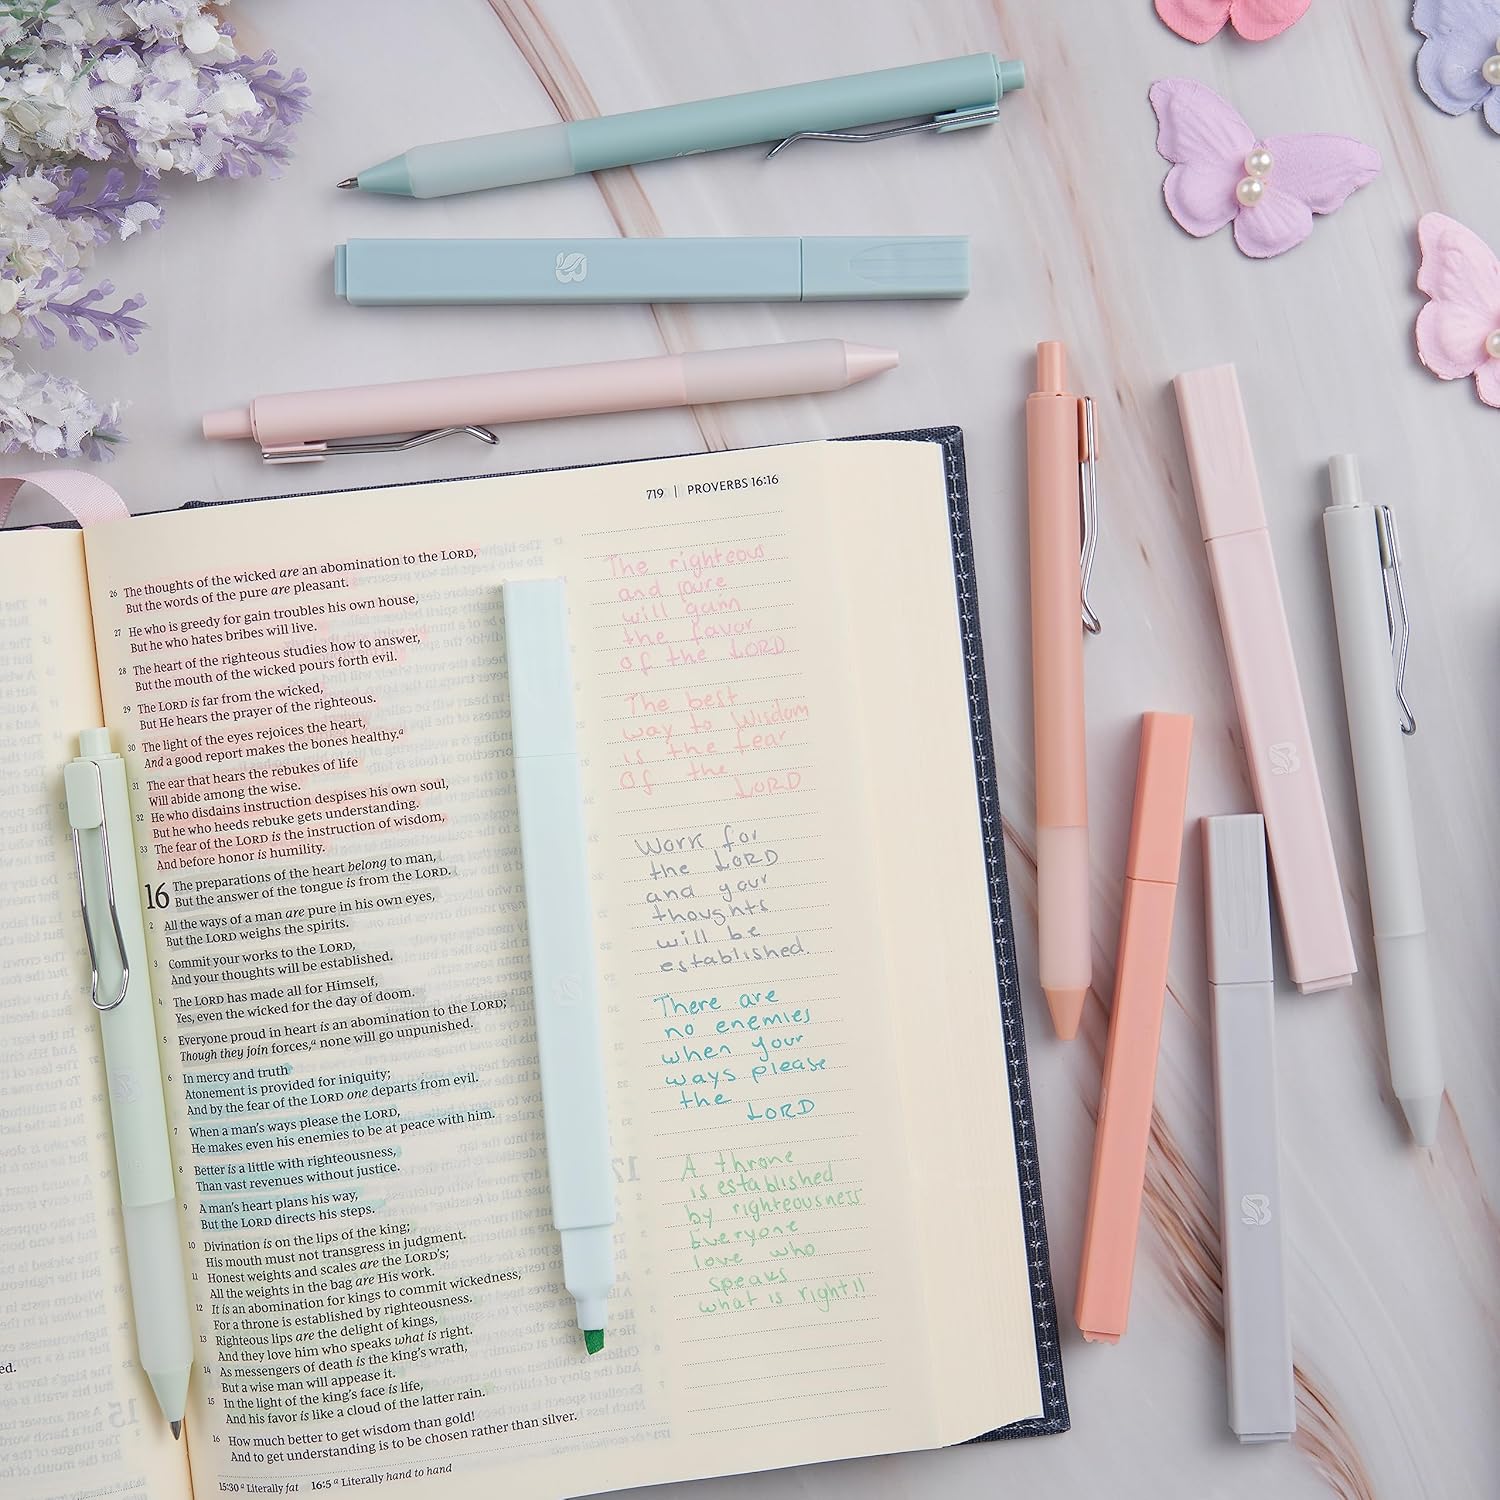 719 | PROVERBS 16:16
26 The thoughts of the wicked are an abomination to the LORD,
But the words of the pure are pleasant.
27 He who is greedy for gain troubles his own house,
But he who hates bribes will live.
28 The heart of the righteous studies how to answer,
But the mouth of the wicked pours forth evil.
29 The LORD is far from the wicked,
But He hears the prayer of the righteous.
30 The light of the eyes rejoices the heart,
And a good report makes the bones healthy.a
31 The ear that hears the rebukes of life
Will abide among the wise.
32 He who disdains instruction despises his own soul,
But he who heeds rebuke gets understanding.
33 The fear of the LORD is the instruction of wisdom,
And before honor is humility.
16 The preparations of the heart belong to man,
But the answer of the tongue is from the LORD.
2 All the ways of a man are pure in his own eyes,
But the LORD weighs the spirits.
3 Commit your works to the LORD,
And your thoughts will be established.
4 The LORD has made all for Himself,
Yes, even the wicked for the day of doom.
5 Everyone proud in heart is an abomination to the LORD;
Though they join forces,a none will go unpunished.
6 In mercy and truth
Atonement is provided for iniquity;
And by the fear of the LORD one departs from evil.
7 When a man's ways please the LORD,
He makes even his enemies to be at peace with him.
8 Better is a little with righteousness,
Than vast revenues without justice.
9 A man's heart plans his way,
But the LORD directs his steps.
10 Divination is on the lips of the king;
His mouth must not transgress in judgment.
11 Honest weights and scales are the LORD's;
All the weights in the bag are His work.
12 It is an abomination for kings to commit wickedness,
For a throne is established by righteousness.
13 Righteous lips are the delight of kings,
And they love him who speaks what is right.
14 As messengers of death is the king's wrath,
But a wise man will appease it.
15 In the light of the king's face is life,
And his favor is like a cloud of the latter rain.
16 How much better to get wisdom than gold!
And to get understanding is to be chosen rather than silver.
15:30 a Literally fat 16:5 a Literally hand to hand
The righteous
and pure
will gain
the favor
of the LORD
The best
way to Wisdom
is the fear
of the
LORD
Work for
the LORD
and your
thoughts
will be
established.
There are
no enemies
when your
ways please
the
LORD
A throne
is established
by righteousness
Everyone
love who
speaks
what is right!!
ed.